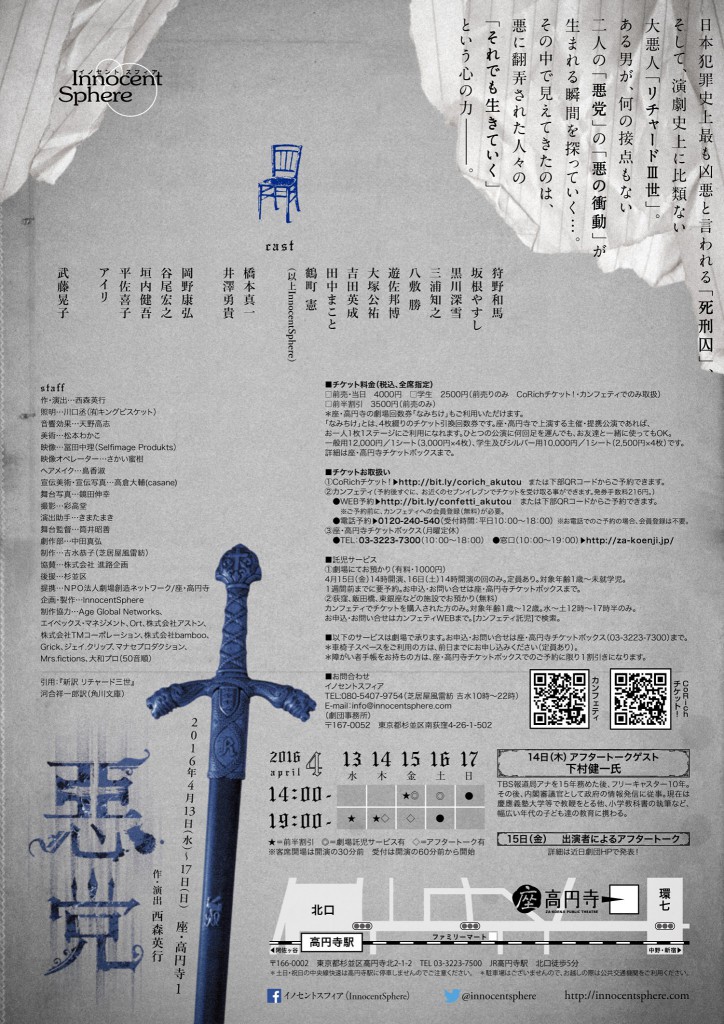 日本犯罪史上最も凶悪と言われる「死刑囚」、
そして、演劇史上に比類ない
大悪人「リチャードⅢ世」。
ある男が、何の接点もない
二人の「悪党」の「悪の衝動」が
生まれる瞬間を探っていく…。
その中で見えてきたのは、
悪に翻弄された人々の
「それでも生きていく」
という心の力――。
イノセントスフィア
Innocent
Sphere
cast
狩野和馬
坂根やすし
黒川深雪
三浦知之
八敷 勝
遊佐邦博
大塚公祐
吉田英成
田中まこと
鶴町 憲
(以上InnocentSphere)
橋本真一
井澤勇貴
岡野康弘
谷尾宏之
垣内健吾
平佐喜子
アイリ
武藤晃子
staff
作・演出…西森英行
照明…川口丞(有キングビスケット)
音響効果…天野高志
美術…松本わかこ
映像…冨田中理(Selfimage Produkts)
映像オペレーター…さかい蜜樹
ヘアメイク…鳥香淑
宣伝美術・宣伝写真…高倉大輔(casane)
舞台写真…鏡田伸幸
撮影…彩高堂
演出助手…きまたまき
舞台監督…筒井昭善
劇作部…中田真弘
制作…吉水恭子(芝居屋風雷紡)
協賛…株式会社 進路企画
後援…杉並区
提携…NPO法人劇場創造ネットワーク/座・高円寺
企画・製作…InnocentSphere
制作協力…Age Global Networks、
エイベックス・マネジメント、Ort、株式会社アストン、
株式会社TMコーポレーション、株式会社bamboo、
Grick、ジェイ.クリップ、マナセプロダクション、
Mrs.fictions、大和プロ(50音順)
引用:『新訳 リチャード三世』
河合祥一郎訳(角川文庫)
■チケット料金(税込、全席指定)
□前売・当日 4000円 □学生 2500円(前売りのみ CoRichチケット!・カンフェティでのみ取扱)
□前半割引 3500円(前売のみ)
*座・高円寺の劇場回数券「なみちけ」もご利用いただけます。
「なみちけ」とは、4枚綴りのチケット引換回数券です。座・高円寺で上演する主催・提携公演であれば、
お一人1枚1ステージにご利用になれます。ひとつの公演に何回足を運んでも、お友達と一緒に使ってもOK。
一般用12,000円/1シート(3,000円×4枚)、学生及びシルバー用10,000円/1シート(2,500円×4枚)です。
詳細は座・高円寺チケットボックスまで。
■チケットお取扱い
①CoRichチケット!▶http://bit.ly/corich_akutou または下部QRコードからご予約できます。
②カンフェティ(予約後すぐに、お近くのセブンイレブンでチケットを受け取る事ができます。発券手数料216円。)
●WEB予約▶http://bit.ly/confetti_akutou または下部QRコードからご予約できます。
※ご予約前に、カンフェティへの会員登録(無料)が必要。
●電話予約▶0120-240-540(受付時間:平日10:00〜18:00) ※お電話でのご予約の場合、会員登録は不要。
③座・高円寺チケットボックス(月曜定休)
●TEL 03-3223-7300(10:00〜18:00) ●窓口(10:00〜19:00)▶http://za-koenji.jp/
■託児サービス
①劇場にてお預かり(有料・1000円)
4月15日(金)14時開演、16日(土)14時開演の回のみ。定員あり。対象年齢1歳〜未就学児。
1週間前までに要予約。お申込・お問い合せは座・高円寺チケットボックスまで。
②荻窪、飯田橋、東銀座などの施設でお預かり(無料)
カンフェティでチケットを購入された方のみ。対象年齢1歳〜12歳。水〜土12時〜17時半のみ。
お申込・お問い合せはカンフェティWEBまで。[カンフェティ託児]で検索。
■以下のサービスは劇場で承ります。お申込・お問い合せは座・高円寺チケットボックス(03-3223-7300)まで。
*車椅子スペースをご利用の方は、前日までにお申し込みください(定員あり)。
*障がい者手帳をお持ちの方は、座・高円寺チケットボックスでのご予約に限り1割引きになります。
■お問合わせ
イノセントスフィア
TEL:080-5407-9754(芝居屋風雷紡 吉水10時〜22時)
E-mail:info@innocentsphere.com
(劇団事務所)
〒167-0052 東京都杉並区南荻窪4-26-1-502
カンフェティ
CoRichチケット!
2016 4
april
13 14 15 16 17
水 木 金 土 日
14:00- ★◎ ◎ ●
19:00- ★ ★◇ ◇ ●
★=前半割引 ◎=劇場託児サービス有 ◇=アフタートーク有
※客席開場は開演の30分前 受付は開演の60分前から開始
14日(木) アフタートークゲスト
下村健一氏
TBS報道局アナを15年務めた後、フリーキャスター10年。
その後、内閣審議官として政府の情報発信に従事。現在は
慶應義塾大学等で教鞭をとる他、小学教科書の執筆など、
幅広い年代の子ども達の教育に携わる。
15日(金) 出演者によるアフタートーク
詳細は近日劇団HPで発表!
惡党
2016年4月13日(水)〜17日(日) 座・高円寺1
作・演出 西森英行
北口
座 高円寺
ZA-KOENJI PUBLIC THEATRE
環七
高円寺駅
ファミリーマート
◀阿佐ヶ谷
中野・新宿▶
〒166-0002 東京都杉並区高円寺北2-1-2 TEL 03-3223-7500 JR高円寺駅 北口徒歩5分
*土日・祝日の中央線快速は高円寺駅に停車しませんのでご注意ください。 *駐車場はございませんので、お越しの際は公共交通機関をご利用ください。
イノセントスフィア(InnocentSphere)
@innocentsphere
http://innocentsphere.com